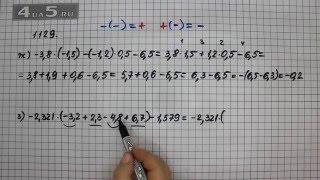 4дз.RU
-(-) = + +(-) = -
1129.
ж) -3,8·(-1,5)-(-1,2)·0,5-6,5=3,8·1,5+1,2·0,5-6,5=
1 3 2 4
=3,8+1,9+0,6-6,5=5,7+0,6-6,5=6,3-6,5=-(6,5-6,3)=-0,2
з) -2,321·(-3,2+2,3-4,8+6,7)-1,579=-2,321·(